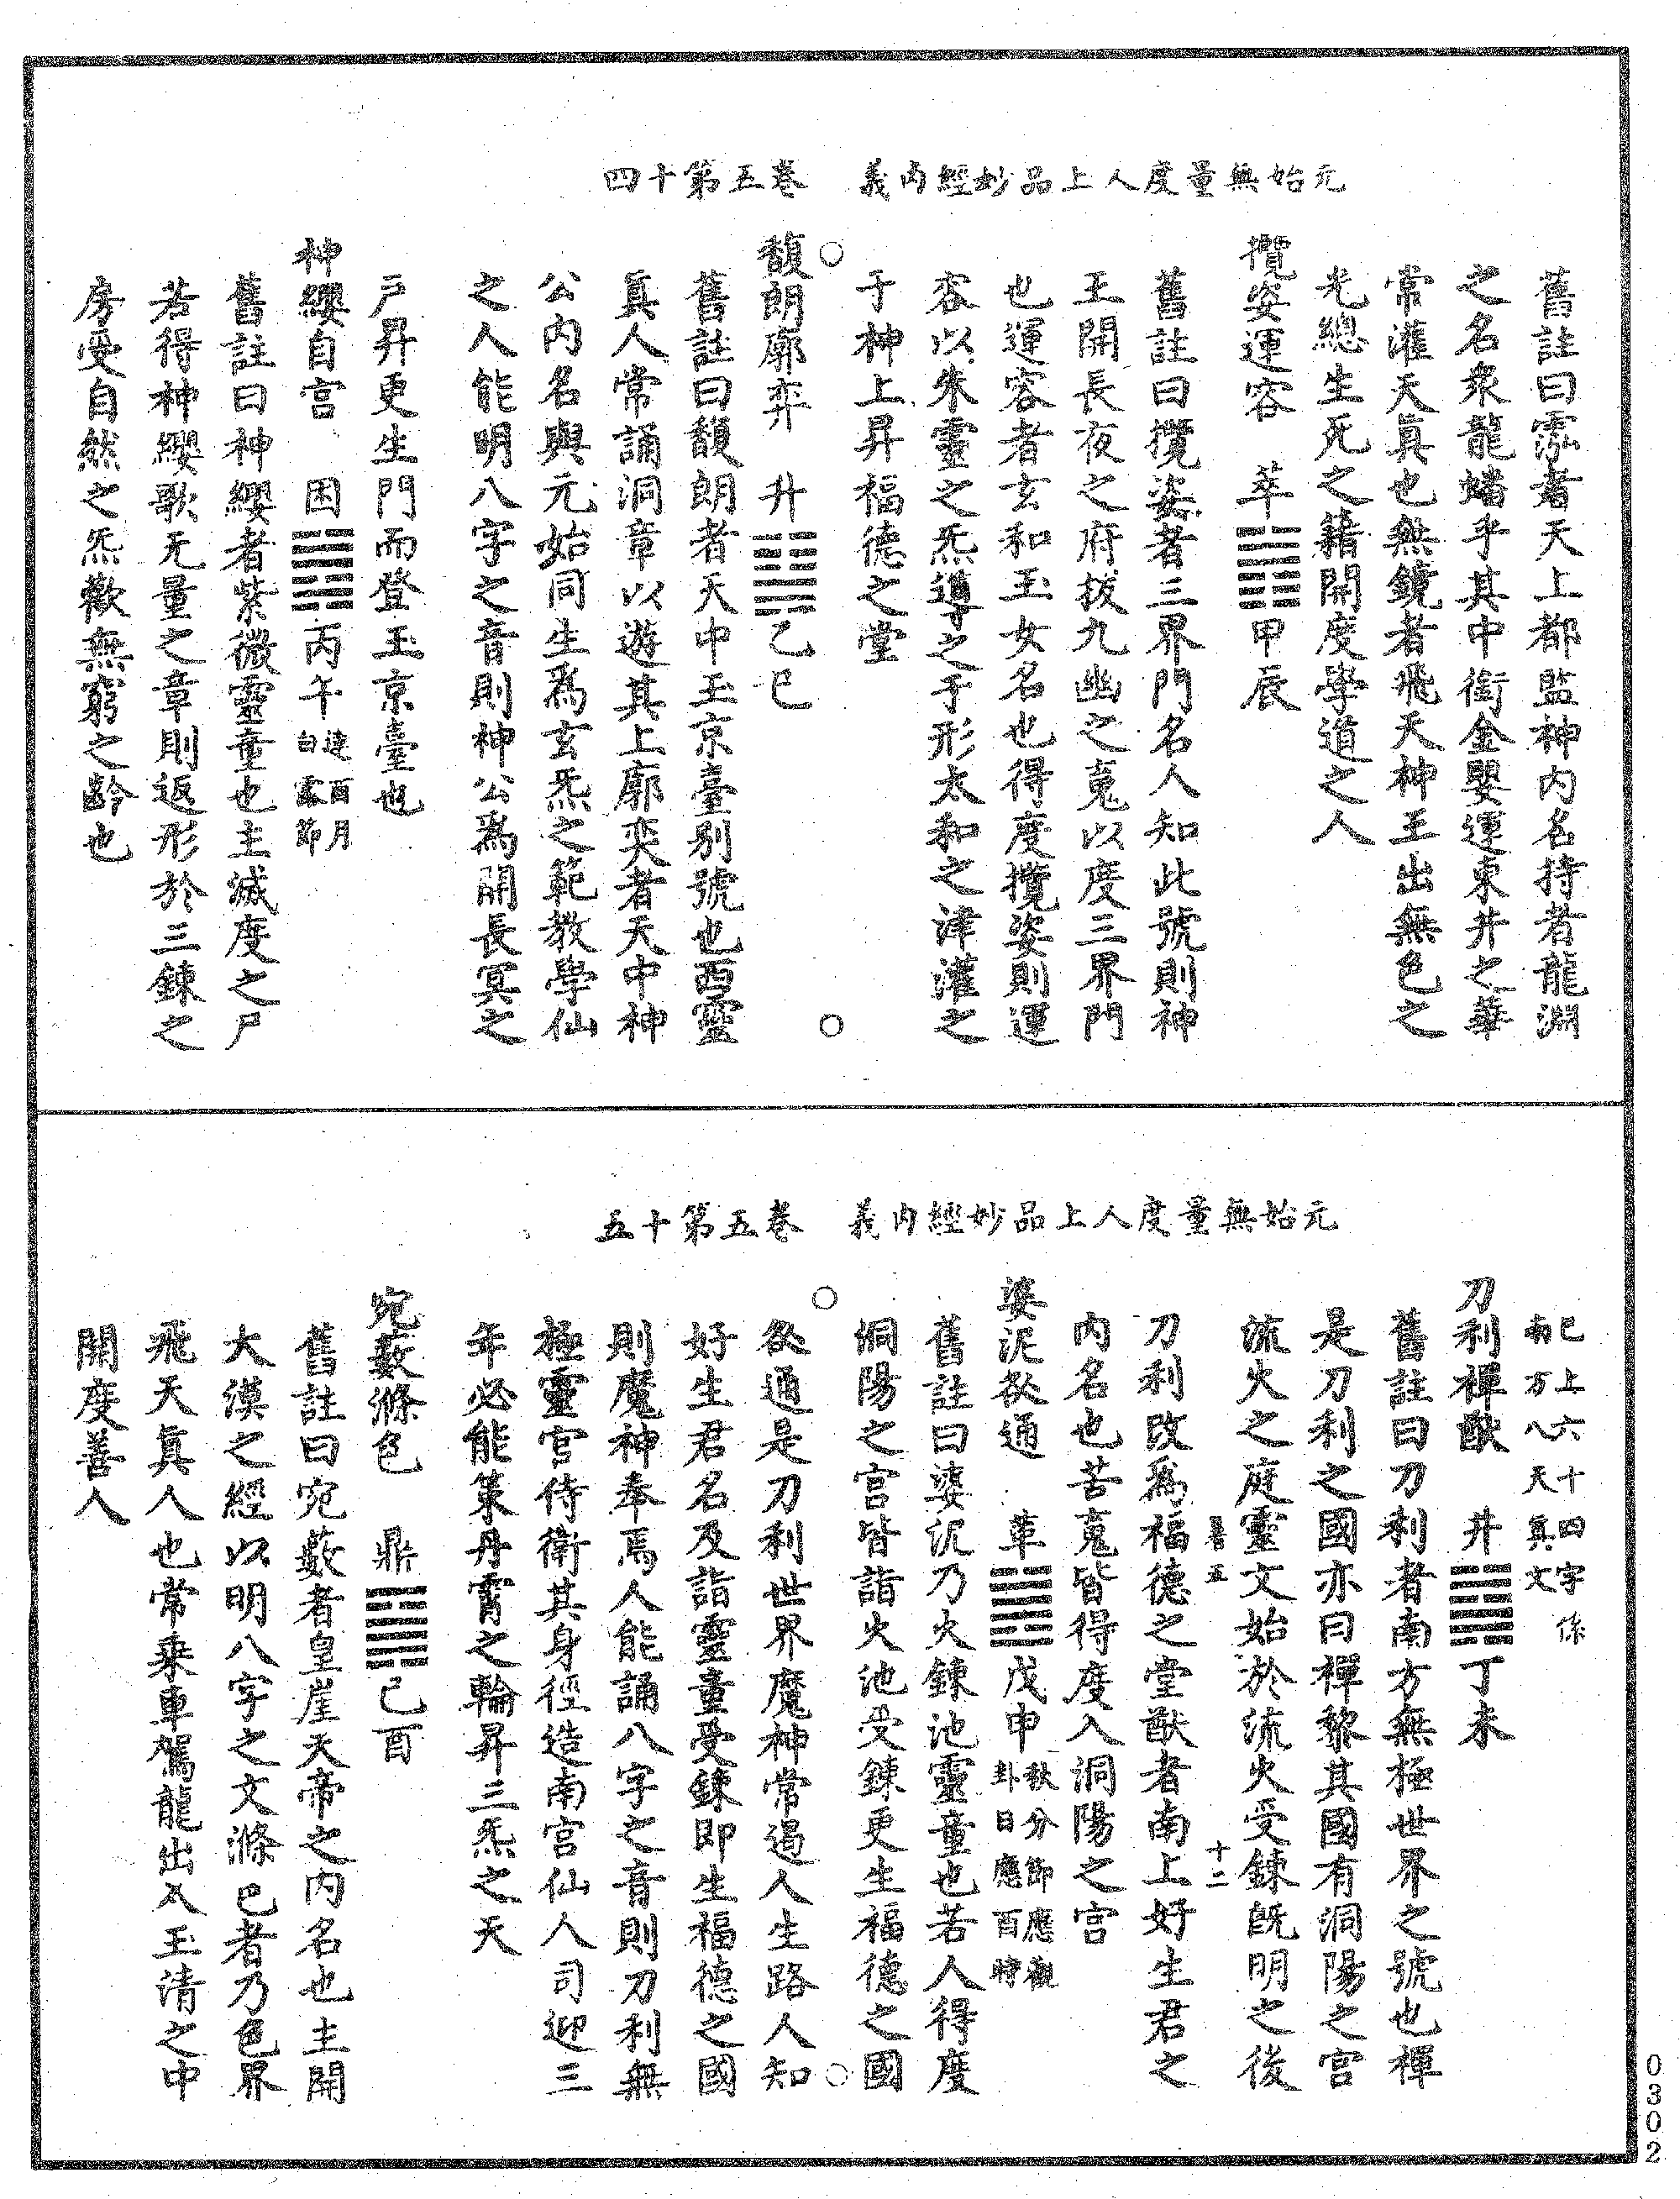 元始無量度人上品妙經內義　卷五第十四
舊註曰霐者天上都監神內名持者龍淵
之名衆龍蟠乎其中銜金嬰運東井之華
常灌天真也無鏡者飛天神王出無色之
光總生死之籍開度學道之人
攬姿運容　萃䷬甲辰
舊註曰攬姿者三界門名人知此號則神
王開長夜之府拔九幽之䰟以度三界門
也運容者玄和玉女名也得度攬姿則運
容以朱靈之炁導之于形太和之津灌之
于神上昇福德之堂
○馥朗廓奕　升䷭乙巳○
舊註曰馥朗者天中玉京臺別號也西靈
真人常誦洞章以遊其上廓奕者天中神
公內名與元始同生爲玄炁之範教學仙
之人能明八字之音則神公爲開長冥之
戶昇更生門而登玉京臺也
神纓自宮　困䷮丙午建酉月白露節
舊註曰神纓者紫微靈童也主滅度之尸
若得神纓歌无量之章則返形於三鍊之
房受自然之炁歡無窮之齡也
元始無量度人上品妙經內義　卷五第十五
已上六十四字係
南方八天真文
刀利禪猷　井䷯丁未
舊註曰刀利者南方無極世界之號也禪
是刀利之國亦曰禪黎其國有洞陽之宮
流火之庭靈文始於流火受鍊旣明之後
五　十二
刀利改爲福德之堂猷者南上好生君之
內名也苦䰟皆得度入洞陽之宮
婆泥㳄通　革䷰戊申秋分節應觀卦日應酉時
舊註曰婆泥乃火鍊池靈童也若人得度
洞陽之宮皆詣火池受鍊更生福德之國
○㳄通是刀利世界魔神常遏人生路人知○
好生君名及詣靈童受鍊即生福德之國
則魔神奉焉人能誦八字之音則刀利無
極靈官侍衛其身徑造南宮仙人司迎三
年必能策丹霄之輪昇三炁之天
宛藪滌色　鼎䷱己酉
舊註曰宛藪者皇崖天帝之內名也主開
大漠之經以明八字之文滌色者乃色界
飛天真人也常乘車駕龍出入玉清之中
開度善人
0302